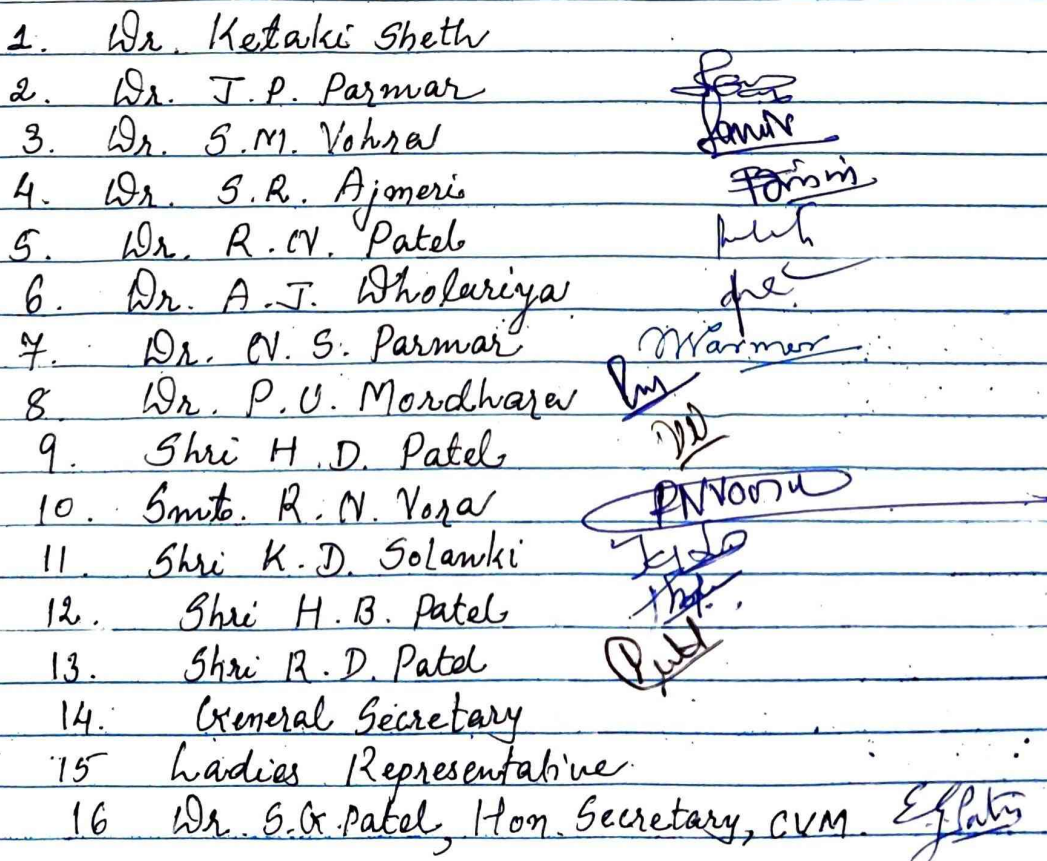 1. Dr. Ketaki Sheth
2. Dr. J.P. Parmar
3. Dr. S.M. Vohra
4. Dr. S.R. Ajmeri
5. Dr. R.N. Patel
6. Dr. A.J. Dholariya
7. Dr. N.S. Parmar
8. Dr. P.U. Mordhara
9. Shri H.D. Patel
10. Smt. R.N. Vora RNVora
11. Shri K.D. Solanki
12. Shri H.B. Patel
13. Shri R.D. Patel
14. General Secretary
15 Ladies Representative.
16 Dr. S.G. Patel, Hon. Secretary, CVM.